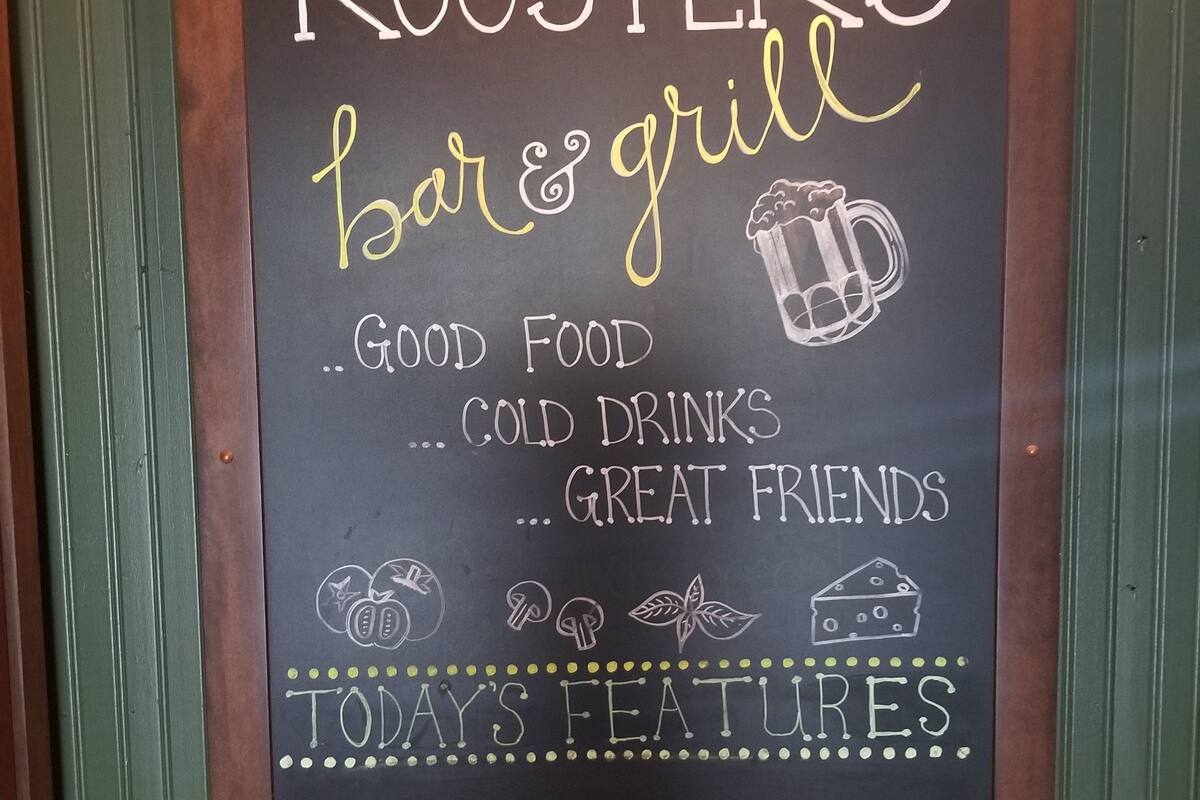 ROOSTERS
bar & grill
..GOOD FOOD
...COLD DRINKS
...GREAT FRIENDS
TODAY'S FEATURES